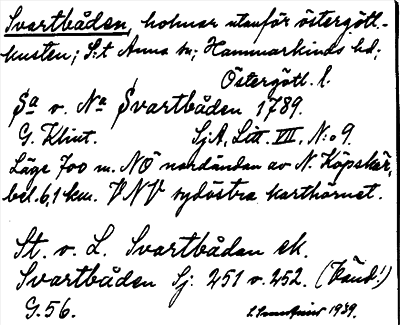 Svartbåden, holmar utanför östergötl.-
kusten; S:t Anna sn; Hammarkinds hd;
Östergötl. l.
Sa o. Na Svartbåden 1789.
G. Klint. Sj.A. Litt. VII, N:o 9.
Läge 700 m. NO nordändan av N. Köpskär,
bel. 6,1 km. VNV sydöstra karthörnet.
St. o. L. Svartbåden ek.
Svartbåden Sj: 251 o. 252. (bånd!)
G. 56. 1939.